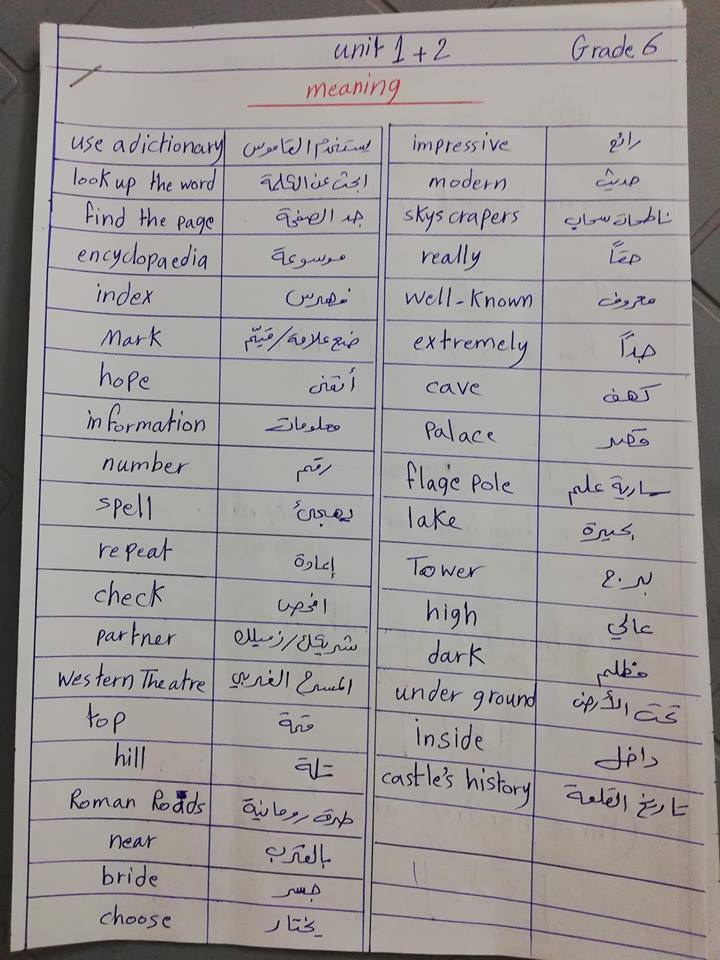 unit 1 + 2 Grade 6
meaning
use a dictionary يستخدم القاموس
look up the word ابحث عن الكلمة
find the page جد الصفحة
encyclopaedia موسوعة
index فهرس
Mark ضع علامة/قيّم
hope أتمنى
information معلومات
number رقم
spell يهجئ
repeat إعادة
check افحص
partner شريك/زميلك
Western Theatre المسرح الغربي
top قمة
hill تلة
Roman Roads طرق رومانية
near بالقرب
bride جسر
choose يختار
impressive رائع
modern حديث
skyscrapers ناطحات سحاب
really حقاً
well-known معروف
extremely جداً
cave كهف
palace قصر
flage pole سارية علم
lake بحيرة
Tower برج
high عالي
dark مظلم
under ground تحت الأرض
inside داخل
castle's history تاريخ القلعة